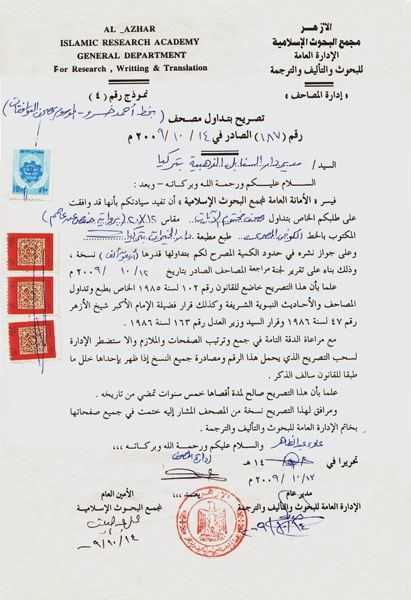 AL _AZHAR
ISLAMIC RESEARCH ACADEMY
GENERAL DEPARTMENT
For Research , Writting & Translation
الأزهر
مجمع البحوث الإسلامية
الإدارة العامة
للبحوث والتأليف والترجمة
« إدارة المصاحف »
نموذج رقم ( ٤ )
تصريح بتداول مصحف
رقم ( ١٨٧ ) الصادر في ١٤ / ١٠ / ٢٠٠٩ م
السيد / مدير دار السنابل الذهبية بتركيا
السلام عليكم ورحمة الله وبركاته – وبعد :
فيسر « الأمانة العامة لمجمع البحوث الإسلامية » أن تفيد سيادتكم بأنها قد وافقت
على طلبكم الخاص بتداول مصحف مقاس ١٥×٢١ ( برواية حفص عن عاصم )
المكتوب بالخط طبع مطبعة
وعلى جواز نشره في حدود الكمية المصرح لكم بتداولها قدرها ( ) نسخة ،
وذلك بناء على تقرير لجنة مراجعة المصاحف الصادر بتاريخ ١٢ / ١٠ / ٢٠٠٩ م
علما بأن هذا التصريح خاضع للقانون رقم ١٠٢ لسنة ١٩٨٥ الخاص بطبع وتداول
المصاحف والأحاديث النبوية الشريفة وكذلك قرار فضيلة الإمام الأكبر شيخ الأزهر
رقم ٤٧ لسنة ١٩٨٦ وقرار السيد وزير العدل رقم ١٦٣ لسنة ١٩٨٦ .
مع مراعاة الدقة التامة في جمع وترتيب الصفحات والملازم وإلا ستضطر الإدارة
لسحب التصريح الذي يحمل هذا الرقم ومصادرة جميع النسخ إذا ظهر بإحداها خلل ما
طبقا للقانون سالف الذكر .
علما بأن هذا التصريح صالح لمدة أقصاها خمس سنوات تمضي من تاريخه .
ومرافق لهذا التصريح نسخة من المصحف المشار إليه ختمت في جميع صفحاتها
بخاتم الإدارة العامة للبحوث والتأليف والترجمة .
والسلام عليكم ورحمة الله وبركاته ،،،
تحريرا في ١٤ هـ
٢٠٠٩ / ١٠ / م
إدارة المصحف
يعتمد ،،،
مدير عام
الإدارة العامة للبحوث والتأليف والترجمة
الأمين العام
لمجمع البحوث الإسلامية
الأزهر